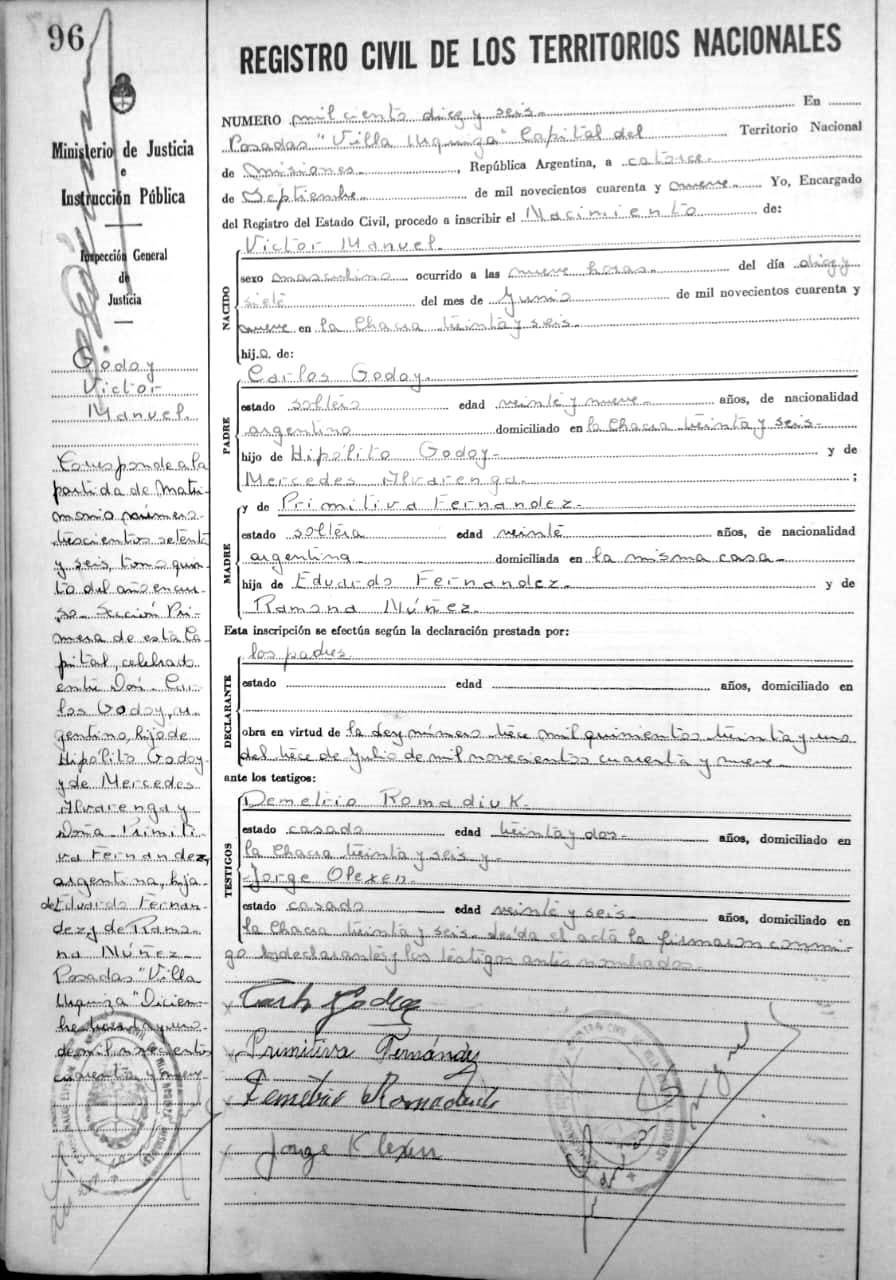 96
REGISTRO CIVIL DE LOS TERRITORIOS NACIONALES
Ministerio de Justicia
e
Instrucción Pública
Inspección General
de
Justicia
Godoy
Victor
Manuel.
Corresponde a la
partida de Matri-
monio número
trescientos setenta
y seis, tomo quin-
to del año en cur-
so. Sección Pri-
mera de esta Ca-
pital, celebrado
entre Don Car-
los Godoy, ar-
gentino, hijo de
Hipólito Godoy
y de Mercedes
Alvarenga y
Doña Primiti-
va Fernandez,
argentina, hija
de Eduardo Fernan-
dez y de Ramo-
na Núñez.
Posadas "Villa
Urquiza" Diciem-
bre treinta y uno
de mil novecientos
cuarenta y nueve
NUMERO mil ciento diez y seis. En
Posadas "Villa Urquiza" Capital del Territorio Nacional
de Misiones, República Argentina, a catorce
de Septiembre de mil novecientos cuarenta y nueve Yo, Encargado
del Registro del Estado Civil, procedo a inscribir el Nacimiento de:
NACIDO
Victor Manuel.
sexo masculino ocurrido a las nueve horas del día diez y
siete del mes de Junio de mil novecientos cuarenta y
nueve en la Chacra treinta y seis.
hijo de:
PADRE
Carlos Godoy.
estado soltero edad veinte y nueve años, de nacionalidad
argentino domiciliado en la Chacra treinta y seis
hijo de Hipólito Godoy y de
Mercedes Alvarenga ;
MADRE
y de Primitiva Fernandez.
estado soltera edad veinte años, de nacionalidad
argentina domiciliada en la misma casa
hija de Eduardo Fernandez y de
Ramona Núñez.
Esta inscripción se efectúa según la declaración prestada por:
DECLARANTE
los padres
estado edad años, domiciliado en
obra en virtud de la Ley número trece mil quinientos treinta y uno
del trece de Julio de mil novecientos cuarenta y nueve
ante los testigos:
TESTIGOS
Demetrio Romadiuk.
estado casado edad treinta y dos años, domiciliado en
la Chacra treinta y seis y
Jorge Olexen.
estado casado edad veinte y seis años, domiciliado en
la Chacra treinta y seis. Leída el acta la firmaron conmi-
go los declarantes y los testigos antes nombrados.
Carlos Godoy
Primitiva Fernández
Demetrio Romadiuk
Jorge Olexen